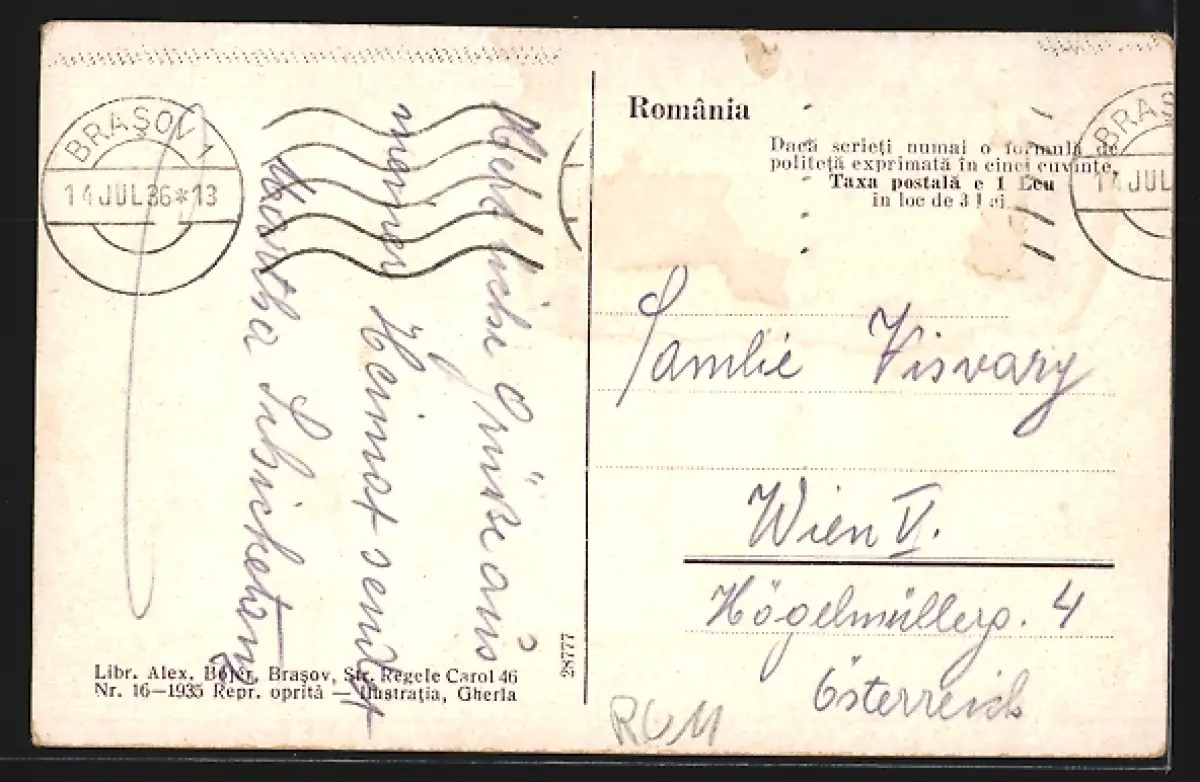 BRAȘOV 1
14 JUL 36*13
Herzliche Grüße aus
meiner Heimat sendet
Martha
Libr. Alex. Bojer, Brașov, Str. Regele Carol 46
Nr. 16—1935 Repr. oprită — Ilustrația, Gherla
28777
România
Dacă scrieți numai o formulă de
politeță exprimată în cinci cuvinte,
Taxa postală e 1 Leu
in loc de 3 lei
BRAȘ
14 JUL
Familie Visvary
Wien V.
Högelmüllerg. 4
Österreich
RUM